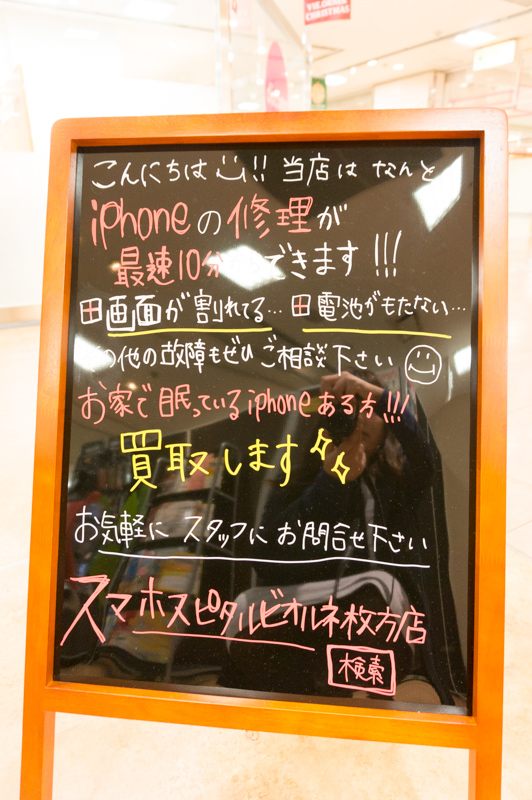 VIE.ORNER
CHRISTMAS
こんにちは!! 当店は なんと
iphoneの修理が
最速10分 できます!!!
画面が割れてる… 電池がもたない…
の他の故障もぜひご相談下さい
お家で眠っているiphoneある方!!!
買取します
お気軽に スタッフに お問合せ下さい
スマホスピタルビオルネ枚方店
検索